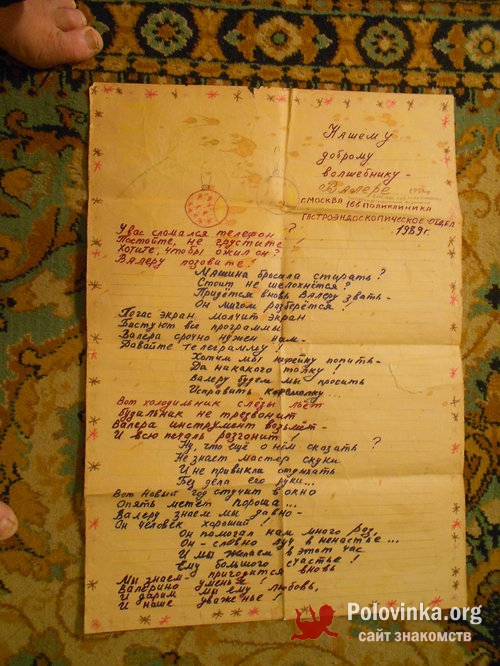 Нашему
доброму
волшебнику -
Валере
г. Москва 166 поликлиника
гастроэндоскопическое отдел
1989г.
У вас сломался телефон?
Постойте, не грустите!
Хотите, чтобы ожил он?
Валеру позовите!
Машина бросила стирать?
Стоит не шелохнётся?
Придётся вновь Валеру звать -
Он мигом разберётся!
Погас экран молчит экран
Бастуют все программы
Валера срочно нужен нам -
Давайте телеграмму!
Хотим мы кофейку попить -
Да никакого толку!
Валеру будем мы просить
Исправить кофемолку...
Вот холодильник слёзы льёт
Будильник не трезвонит
Валера инструмент возьмёт -
И всю печаль разгонит!
Ну, что ещё о нём сказать?
Не знает мастер скуки
И не привыкли отдыхать
Без дела его руки...
Вот Новый год стучит в окно
Опять метёт пороша...
Валеру знаем мы давно -
Он человек хороший!
Он помогал нам много раз,
Он - словно луч в ненастье...
И мы желаем в этот час
Ему большого счастья!
Мы знаем - пригодится вновь
Валерино уменье!
И дарим мы ему любовь,
И наше уваженье!
Polovinka.org
сайт знакомств